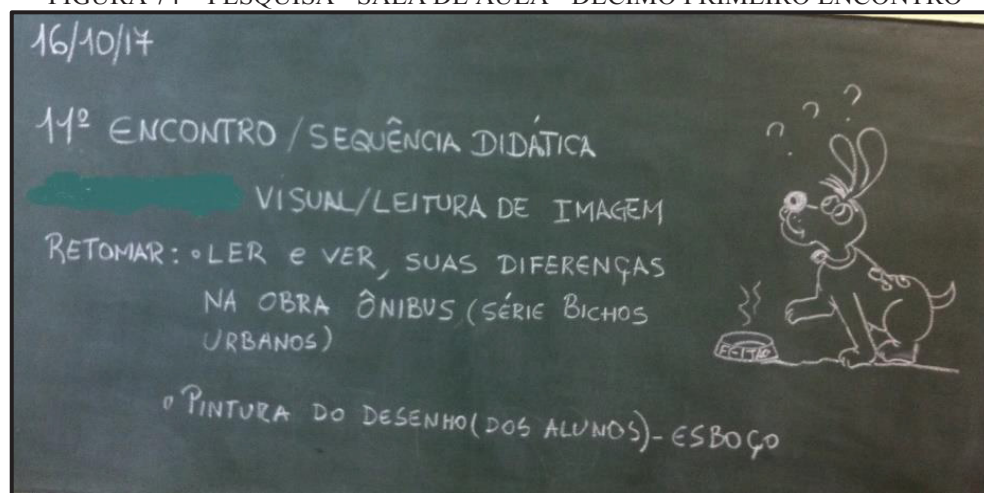 FIGURA 74 - PESQUISA - SALA DE AULA - DÉCIMO PRIMEIRO ENCONTRO
16/10/17
11º ENCONTRO / SEQUÊNCIA DIDÁTICA
VISUAL/LEITURA DE IMAGEM
RETOMAR: • LER e VER, SUAS DIFERENÇAS
NA OBRA ÔNIBUS (SÉRIE BICHOS
URBANOS)
• PINTURA DO DESENHO (DOS ALUNOS) - ESBOÇO
? ? ?